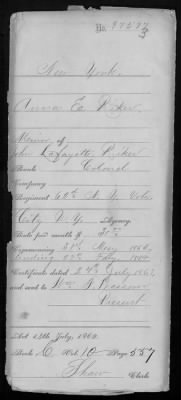 No. 97297
3
New York.
Anna E. Riker,
Minor of
John Lafayette Riker
Rank Colonel
Company
Regiment 62nd N. Y. Vols.
City N.Y. Agency.
Rate per month $ 30
Commencing 31st May 1862,
Ending
Certificate dated 24th July 1863,
and sent to Wm
Present
Act 14th July, 1862.
Book C Vol. 10 Page 557
Shaw Clerk